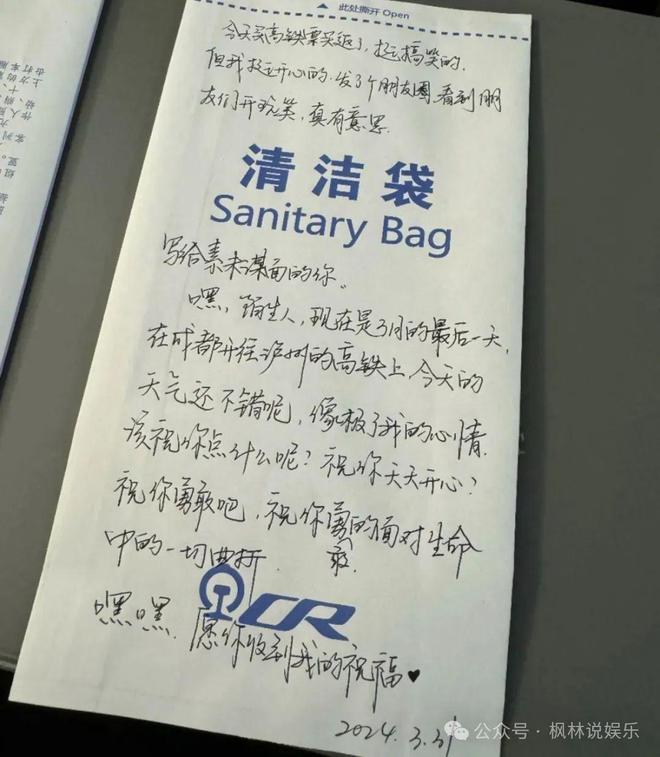 此处撕开 Open
今天买高铁票买返了，挺搞笑的，
但我挺开心的．发了个朋友圈看到朋
友们开玩笑，真有意思．
清洁袋
Sanitary Bag
写给素未谋面的你。
嘿，陌生人，现在是3月的最后一天，
在成都开往泸州的高铁上，今天的
天气还不错呢，像极了我的心情．
该祝你点什么呢？祝你天天开心？
祝你勇敢吧，祝你勇敢的面对生命
中的一切曲折．
CR
嘿嘿．愿你收到我的祝福♥
2024.3.31
公众号·枫林说娱乐